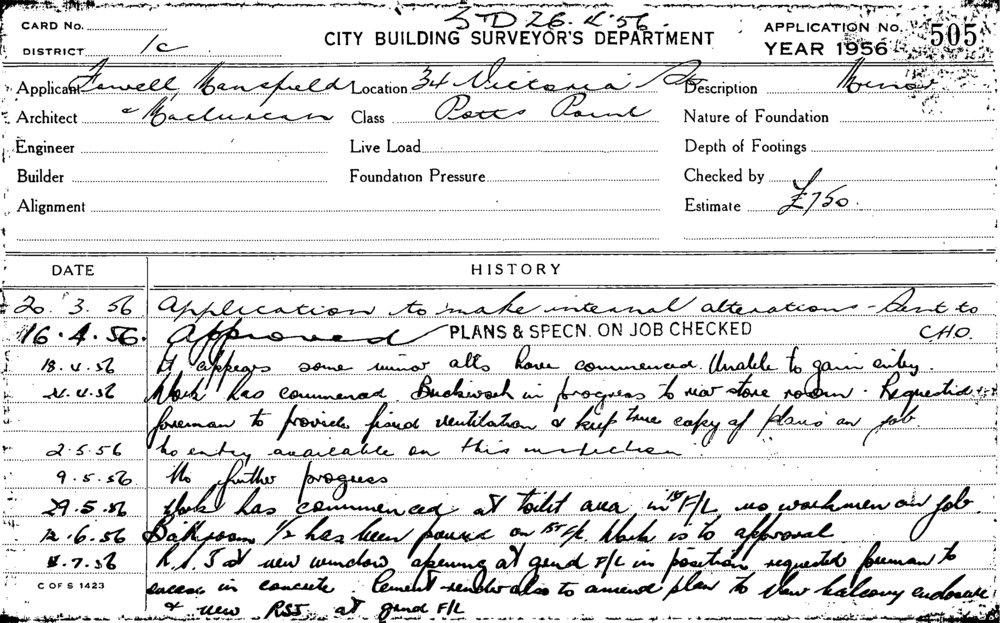 S-D 26.4.56.
CARD No.
DISTRICT 1c
CITY BUILDING SURVEYOR'S DEPARTMENT
APPLICATION No. 505
YEAR 1956
Applicant Fowell, Mansfield Location 34 Victoria St Description Minor
Architect & Maclurcan Class Potts Point Nature of Foundation
Engineer Live Load Depth of Footings
Builder Foundation Pressure Checked by
Alignment Estimate £750.
DATE HISTORY
20.3.56 Application to make internal alterations - Sent to
16.4.56. Approved PLANS & SPECN. ON JOB CHECKED C.H.O.
18.4.56 It appears some minor alts have commenced. Unable to gain entry.
24.4.56 Work has commenced. Brickwork in progress to new store room. Requested
foreman to provide fixed ventilation & keep true copy of plans on job.
2.5.56 No entry available on this inspection
9.5.56 No further progress
29.5.56 Work has commenced at toilet area in 1st F/L no workmen on job.
12.6.56 Bathroom has been poured on 1st F/L. Work is to approval
.7.56 R.S.J at new window opening at grnd F/L in position requested foreman to
encase in concrete. Cement render also to amend plan to show balcony enclosure
& new RSJ at grnd F/L
C OF S 1423